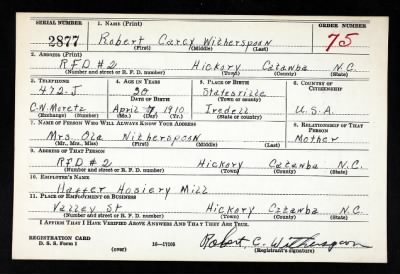 SERIAL NUMBER 1. NAME (Print) ORDER NUMBER
2877 Robert Carey Witherspoon 75
(First) (Middle) (Last)
2. ADDRESS (Print)
RFD #2 Hickory Catawba N.C.
(Number and street or R. F. D. number) (Town) (County) (State)
3. TELEPHONE 4. AGE IN YEARS 5. PLACE OF BIRTH 6. COUNTRY OF CITIZENSHIP
472-J 30 Statesville
DATE OF BIRTH (Town or county)
C.N. Moretz April 7, 1910 Iredell U.S.A.
(Exchange) (Number) (Mo.) (Day) (Yr.) (State or country)
7. NAME OF PERSON WHO WILL ALWAYS KNOW YOUR ADDRESS 8. RELATIONSHIP OF THAT PERSON
Mrs Ola Witherspoon Mother
(Mr., Mrs., Miss) (First) (Middle) (Last)
9. ADDRESS OF THAT PERSON
RFD #2 Hickory Catawba N.C.
(Number and street or R. F. D. number) (Town) (County) (State)
10. EMPLOYER'S NAME
Hosiery Mill
11. PLACE OF EMPLOYMENT OR BUSINESS
Valley St Hickory Catawba N.C.
(Number and street or R. F. D. number) (Town) (County) (State)
I AFFIRM THAT I HAVE VERIFIED ABOVE ANSWERS AND THAT THEY ARE TRUE.
REGISTRATION CARD
D. S. S. Form 1 (over) 16—17105 Robert C. Witherspoon
(Registrant's signature)